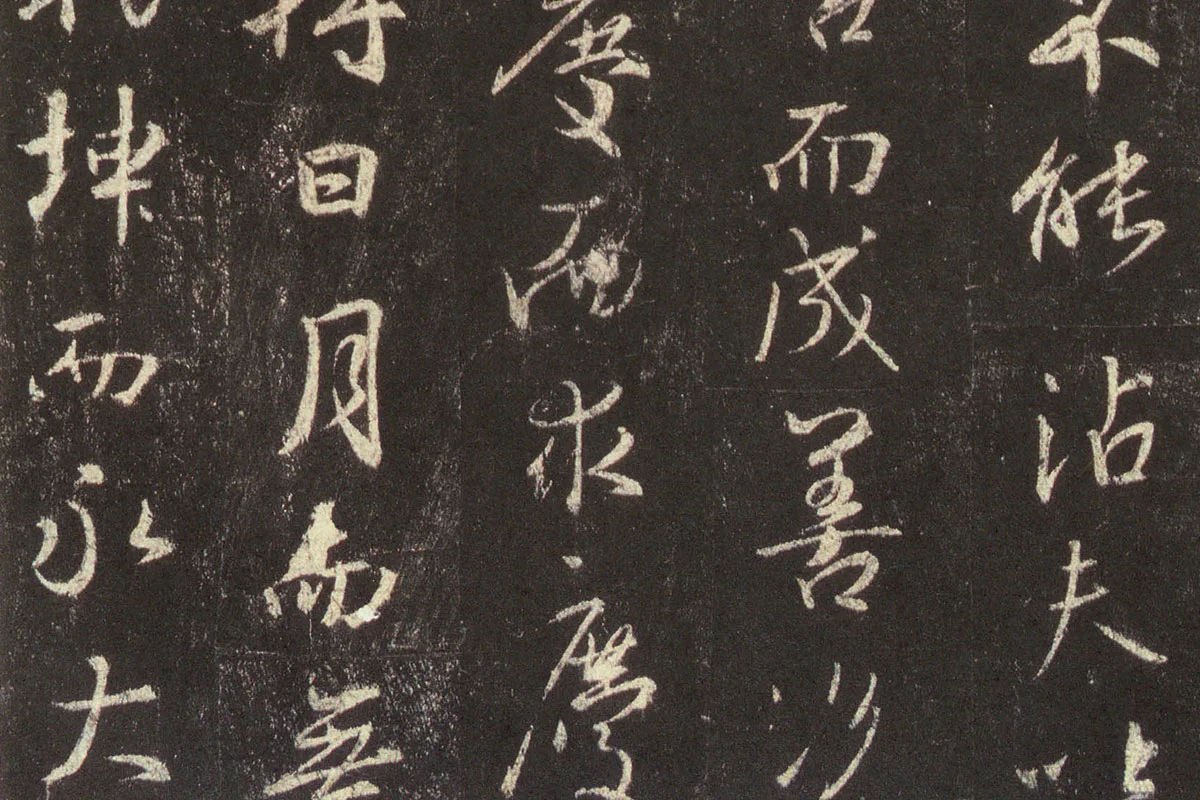 不能沾夫以
善而成善況
慶而求慶
將日月而無
坤而永大